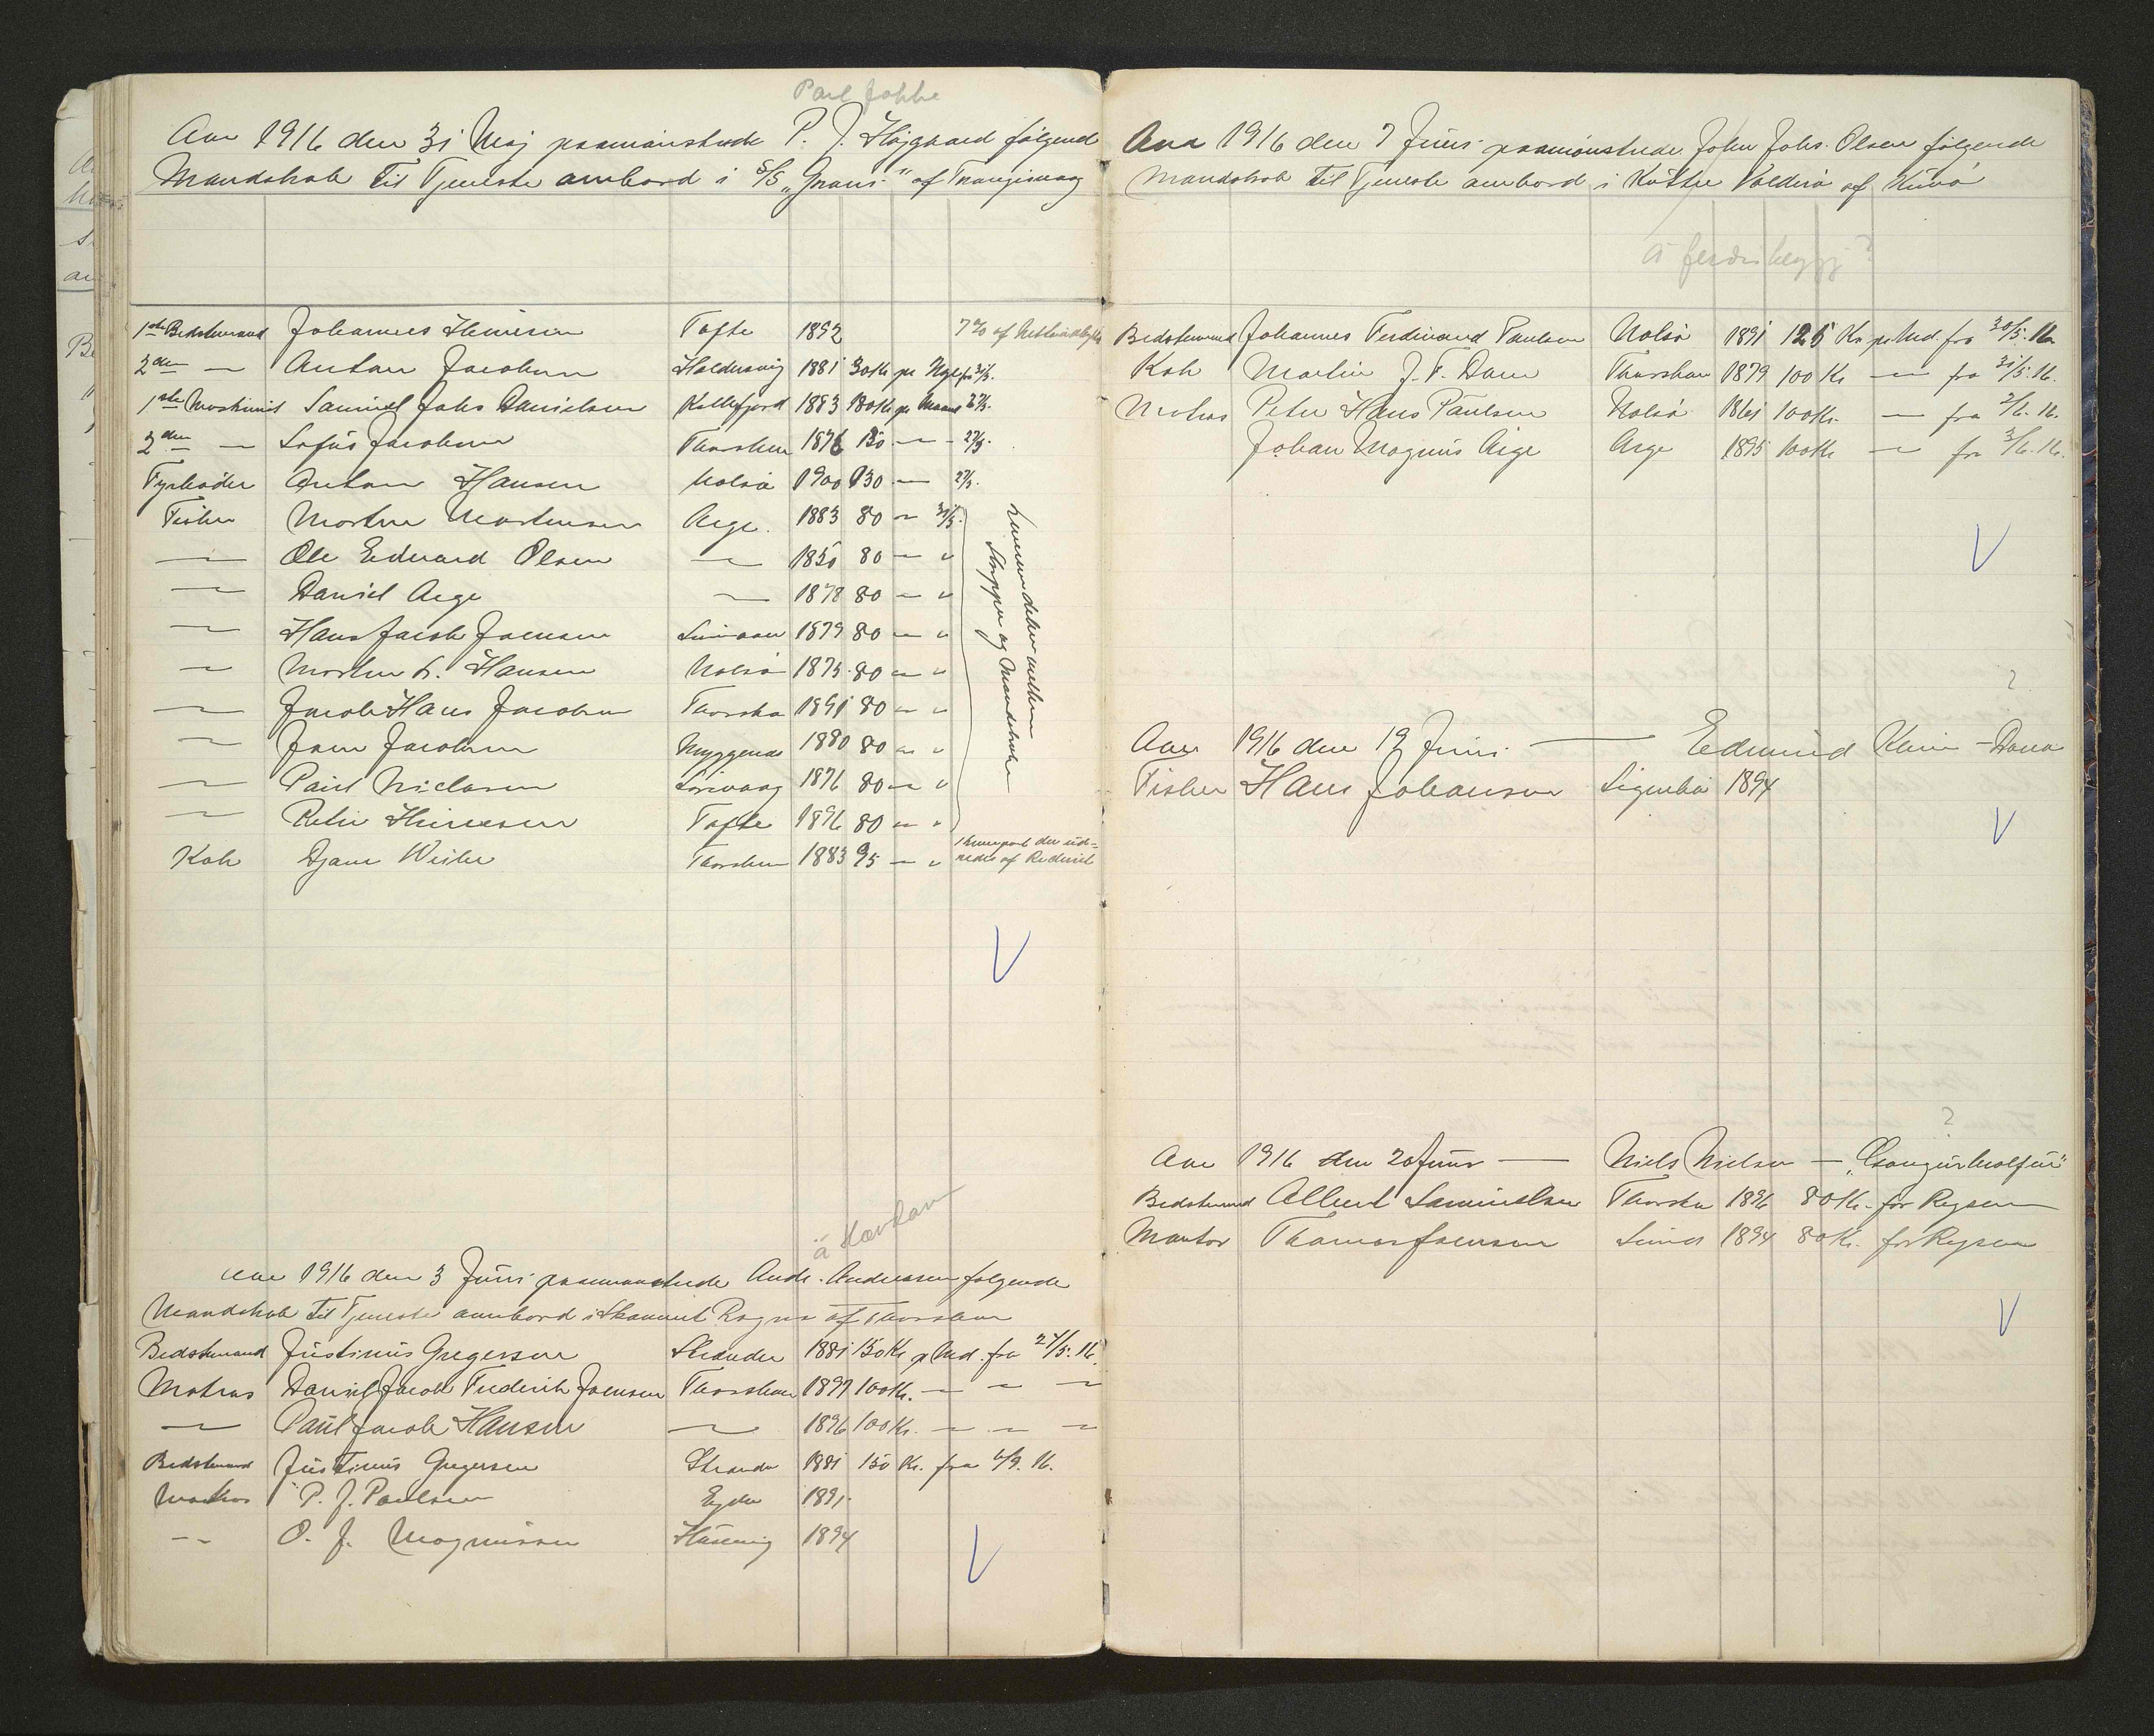 Aar 1916 den 31 Maj paamønstrede P. J. Højgaard følgende
Mandskab til Tjeneste ombord i S/S „Grani“ af Trangisvaag
1ste Bedstemand Johannes Heinesen Tofte 1892 7% af
2den — Anton Jacobsen Haldersvig 1881 30 Kr pr 31/5.
1ste Maskinist Samuel Johs Danielsen Kollefjord 1883 180 Kr pr Maaned 27/5.
2den — Sofus Jacobsen Thorshavn 1876 150 — 27/5.
Fyrbøder Anton Hansen Nolsø 1900 130 — 27/5.
Fisker Morten Mortensen Arge. 1883 80 — 31/5.
— Ole Edvard Olsen — 1850 80 — "
— Daniel Arge — 1878 80 — "
— Hans Jacob Joensen 1879 80 — "
— Morten S. Hansen Nolsø 1875 80 — "
— Jacob Hans Jacobsen Thorshavn 1891 80 — "
— Joen Jacobsen Myggenæs 1880 80 — "
— Paul Niclasen Sørvaag 1876 80 — "
— Peter Heinesen Tofte 1896 80 — "
Kok Djoni Weihe Thorshavn 1883 95 — "
Skipper og Mandskabet
af Rederiet
á Havnar
Aar 1916 den 3 Juni paamønstrede Andr. Andreasen følgende
Mandskab til Tjeneste ombord i Skonnert Ragna af Thorshavn
Bedstemand Justinus Gregersen Strænder 1881 150 Kr p Md. fra 27/5. 16.
Matros Daniel Jacob Frederik Joensen Thorshavn 1897 100 Kr. — — —
— Paul Jacob Hansen — 1896 100 Kr. — — —
Bedstemand Justinus Gregersen Strænder 1881 150 Kr. fra /9. 16.
Matros P. J. Poulsen Ejde 1891.
— O. J. Magnussen Husevig 1894
Aar 1916 den 7 Juni paamønstrede John Johs. Olsen følgende
Mandskab til Tjeneste ombord i Kutter Valderø af Kunø
Bedstemand Johannes Ferdinand Paulsen Nolsø 1891 125 Kr pr Md. fra 30/5. 16.
Kok Martin J. F. Dam Thorshavn 1879 100 Kr — fra 31/5. 16.
Matros Peter Hans Paulsen Nolsø 1861 100 Kr. — fra 2/6. 16.
Johan Magnus Arge Arge 1895 100 Kr — fra 3/6. 16.
?
Aar 1916 den 19 Juni — Edmund Klein — Dana
Fisker Hans Johansen Sigerbø 1894
?
Aar 1916 den 20 Juni — Niels Nielsen —
Bedstemand Albert Samuelsen Thorshavn 1896 80 Kr. for Rejsen
Matros Thomas Joensen Sund 1894 80 Kr. for Rejsen